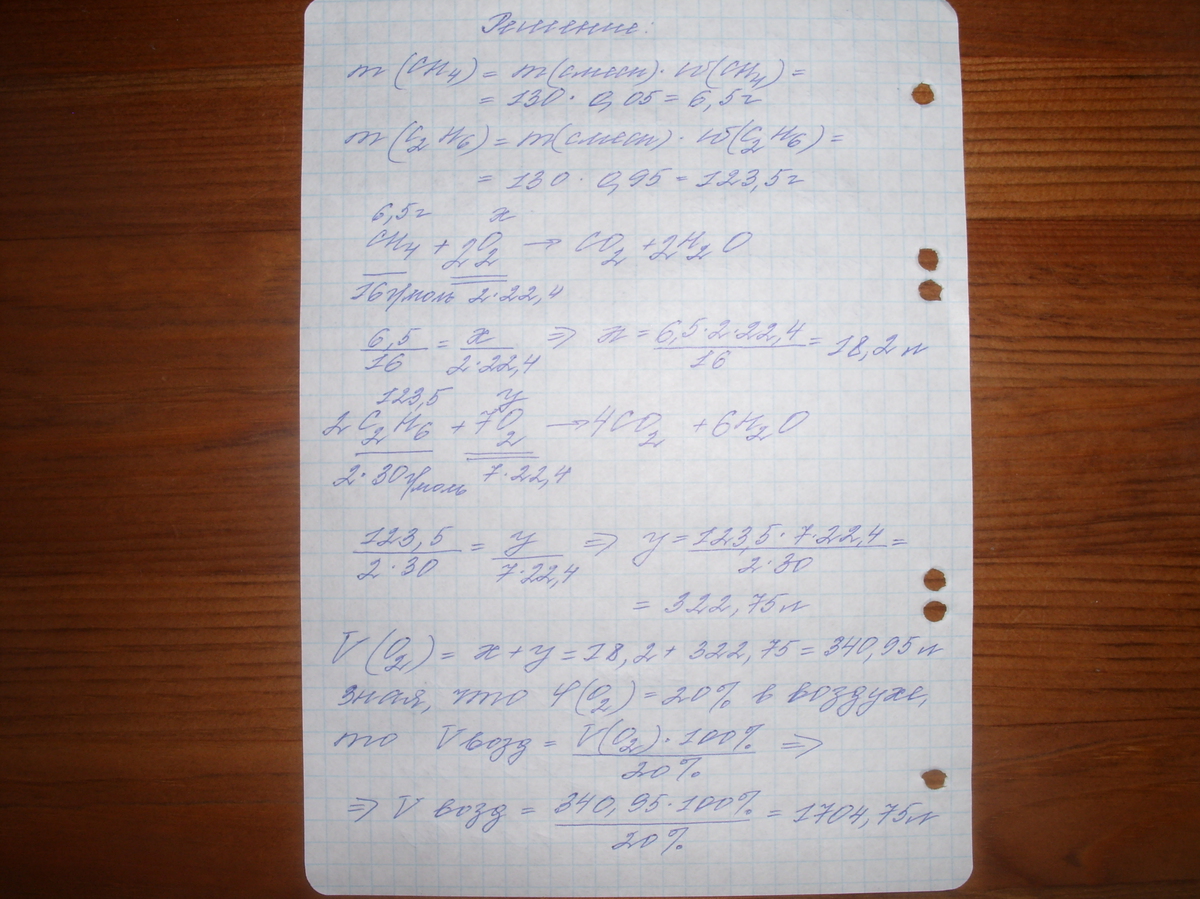 Решение:
m(CH4) = m(смеси)·w(CH4) =
= 130·0,05 = 6,5г
m(C2H6) = m(смеси)·w(C2H6) =
= 130·0,95 = 123,5г
6,5г x
CH4 + 2O2 → CO2 + 2H2O
16г/моль 2·22,4
6,5/16 = x/2·22,4 => x = 6,5·2·22,4/16 = 18,2 л
123,5 y
2C2H6 + 7O2 → 4CO2 + 6H2O
2·30г/моль 7·22,4
123,5/2·30 = y/7·22,4 => y = 123,5·7·22,4/2·30 =
= 322,75л
V(O2) = x+y = 18,2 + 322,75 = 340,95 л
зная, что φ(O2) = 20% в воздухе,
то Vвозд = V(O2)·100%/20% =>
=> V возд = 340,95·100%/20% = 1704,75л